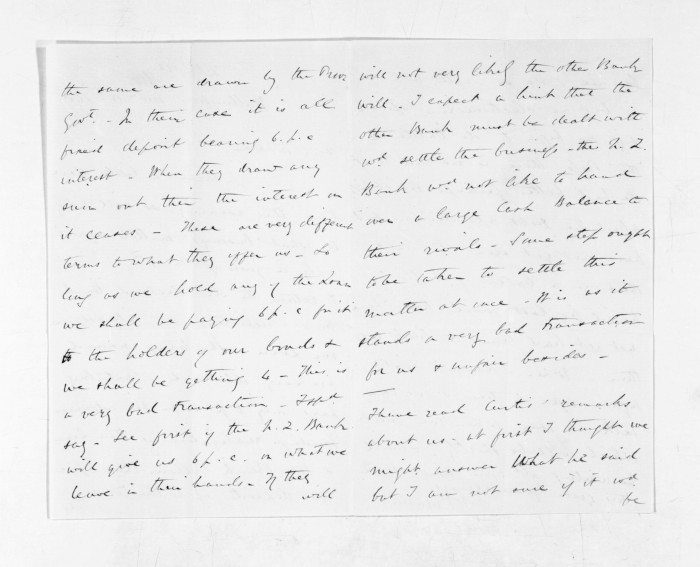 the same are drawn by the Prov
Govt. - In their case it is all
fixed deposit bearing 6. p. c
interest - When they draw any
sum out then the interest on
it ceases - These are very different
terms to what they offer us - So
long as we hold any of the Loan
we shall be paying 6 p. c
to the holders of our bonds &
we shall be getting 4 - This is
a very bad transaction - I shd
say - See first if the N. Z. Bank
will give us 6 p. c. on what we
leave in their hands - If they
will
will not very likely the other Bank
will - I expect a hint that the
other Bank must be dealt with
wd settle the business - the N. Z.
Bank wd not like to hand
over a large Cash Balance to
their rivals - Some step ought
to be taken to settle this
matter at once - It is as it
stands a very bad transaction
for us & unfair besides -
I have read Curtis' remarks
about us - at first I thought we
might answer what he said
but I am not sure if it wd
be